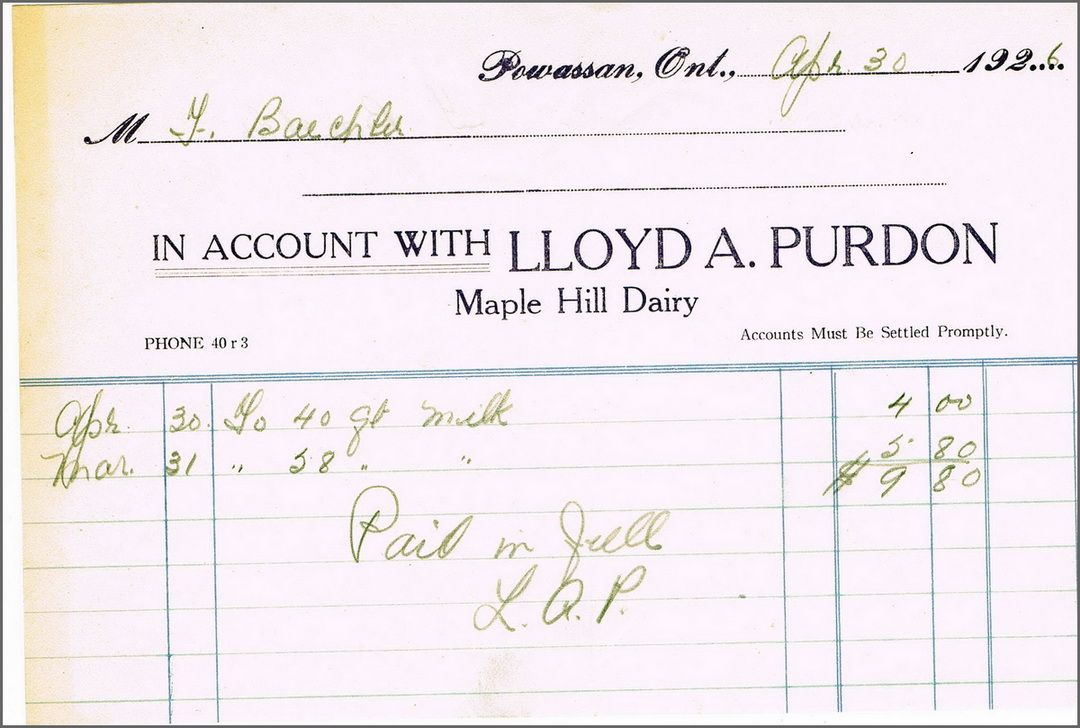 Powassan, Ont., Apr. 30 1926
M F. Baechler
IN ACCOUNT WITH LLOYD A. PURDON
Maple Hill Dairy
PHONE 40 r 3 Accounts Must Be Settled Promptly.
Apr. 30. To 40 qt milk 4 00
Mar. 31 " 58 " " 5 80
$ 9 80
Paid in full
L. A. P.